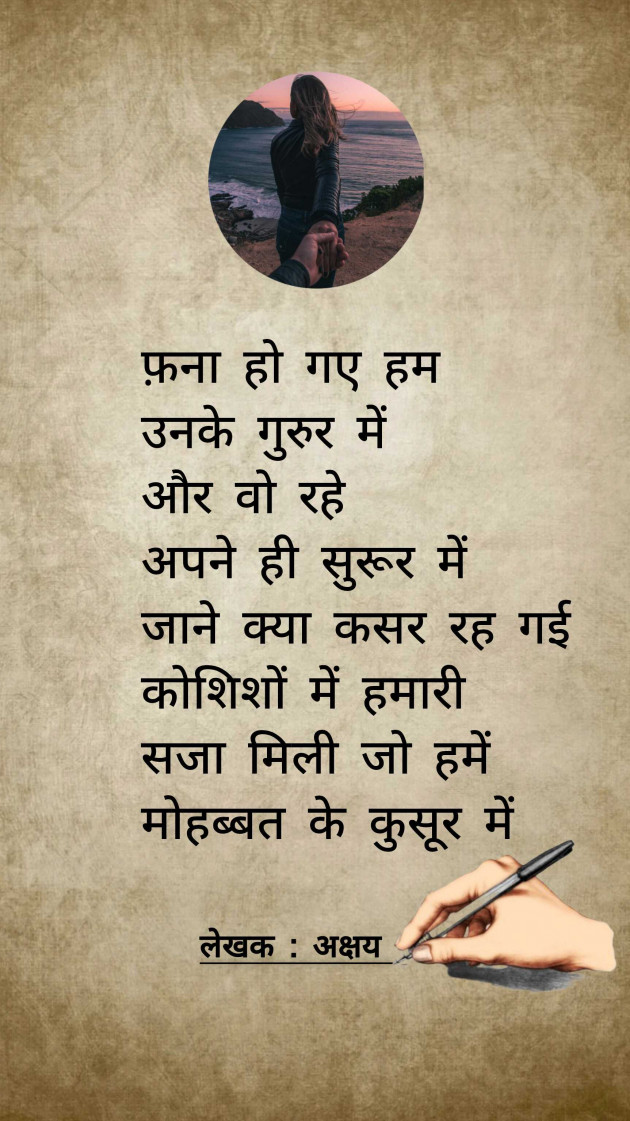 फ़ना हो गए हम
उनके गुरुर में
और वो रहे
अपने ही सुरूर में
जाने क्या कसर रह गई
कोशिशों में हमारी
सजा मिली जो हमें
मोहब्बत के कुसूर में
लेखक : अक्षय